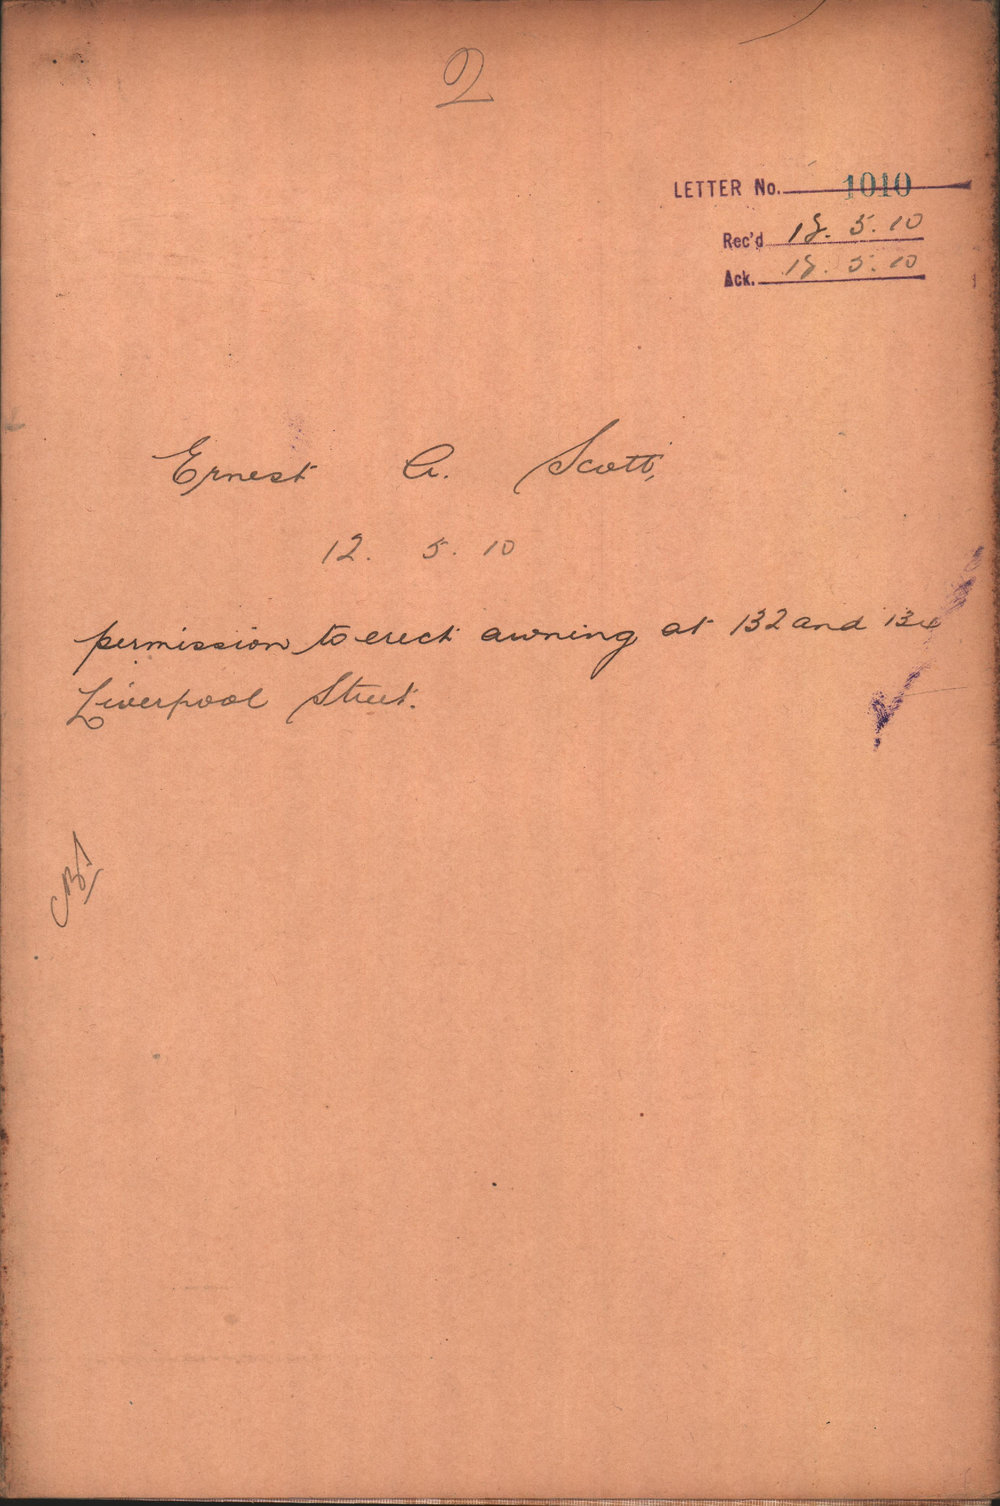 2
LETTER No. 1010
Rec'd 18. 5. 10
Ack. 18. 5. 10
Ernest A. Scott,
12. 5. 10
permission to erect awning at 132 and 134
Liverpool Street.